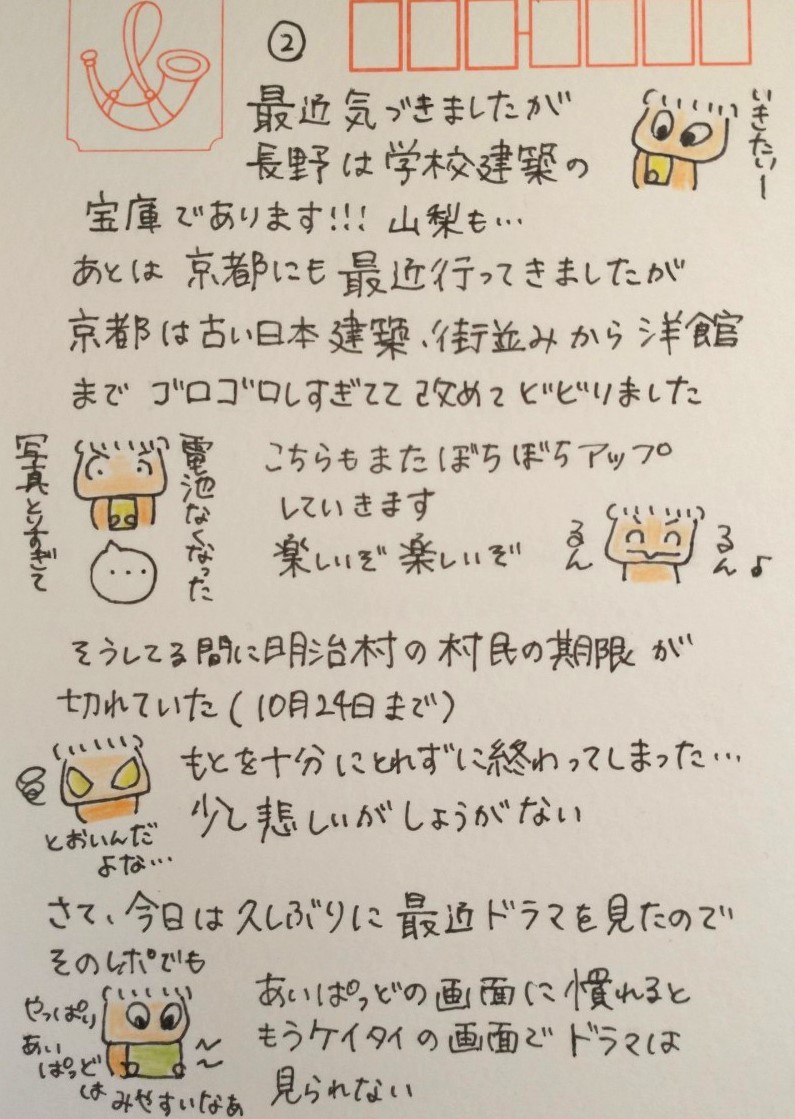 ②
最近気づきましたが
長野は学校建築の
いきたいー
宝庫であります!!! 山梨も…
あとは 京都にも 最近行ってきましたが
京都は古い日本建築、街並みから 洋館
まで ゴロゴロしすぎてて 改めて ビビりました
電池なくなった
写真とりすぎて
こちらもまた ぼちぼちアップ
していきます
楽しいぞ 楽しいぞ
るん
るん♪
そうしてる間に明治村の 村民の期限 が
切れていた(10月24日まで)
もとを十分 にとれずに終わってしまった…
少し悲しいが しょうがない
とおいんだ
よな…
さて、今日は 久しぶりに 最近ドラマを見たので
そのレポでも
あいぱっどの画面に慣れると
もうケイタイの画面で ドラマは
見られない
やっぱり
あい
ぱっど
は みやすいなぁ